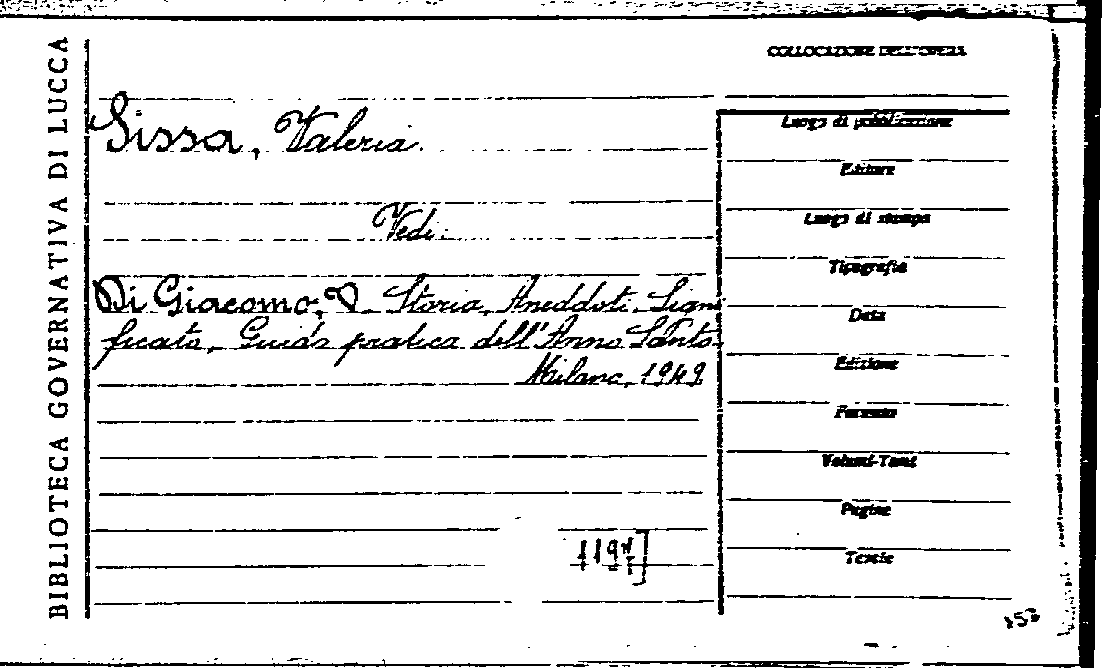 BIBLIOTECA GOVERNATIVA DI LUCCA
COLLOCAZIONE DELL'OPERA
Sissa, Valeria.
Vedi:
Di Giacomo, V. Storia, Aneddoti, Signi
ficato, Guida pratica dell'Anno Santo.
Milano, 1949.
Luogo di pubblicazione
Editore
Luogo di stampa
Tipografia
Data
Edizione
Formato
Volumi-Tomi
Pagine
Tavole